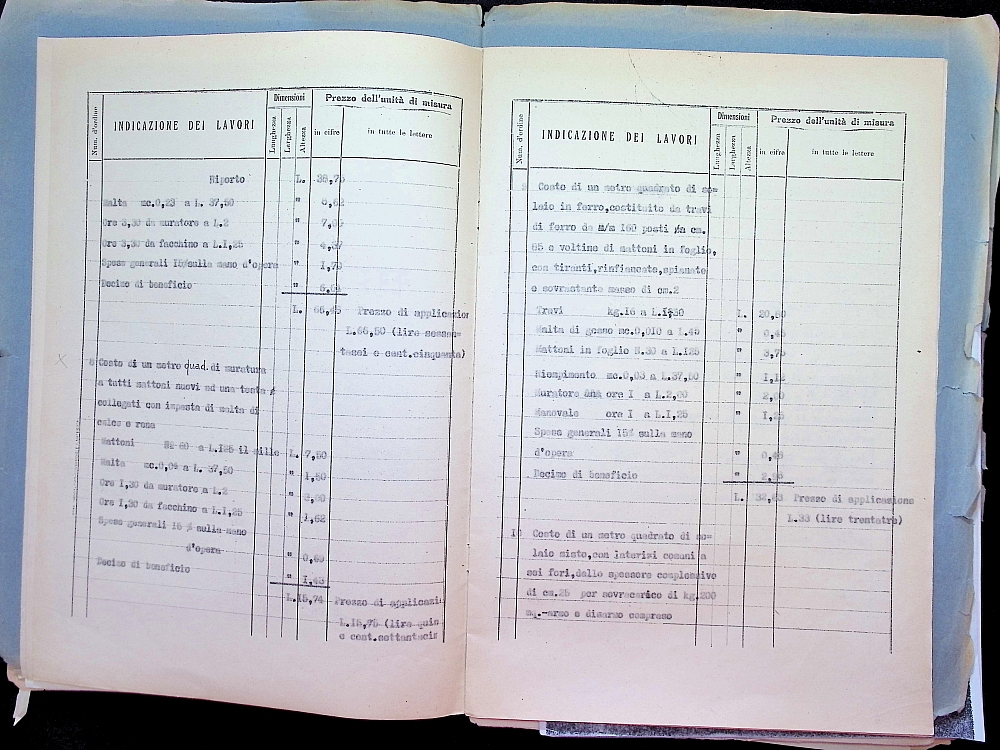 Num. d'ordine
INDICAZIONE DEI LAVORI
Dimensioni
Lunghezza
Larghezza
Altezza
Prezzo dell'unità di misura
in cifre
in tutte le lettere
Riporto L. 38,75
Malta mc.0,23 a L. 37,50 " 8,62
Ore 3,30 da muratore a L.2 " 7,00
Ore 3,30 da facchino a L.I,25 " 4,37
Spese generali 15%sulla mano d'opera " I,70
Decimo di beneficio "
L. 66,45 Prezzo di applicazion
L.66,50 (lire sessan=
tasei e cent.cinquanta)
Costo di un metro quad. di muratura
a tutti mattoni nuovi ad una testa
collegati con impasto di malta di
calce e rena
Mattoni NR 60 a L.I25 il mille L. 7,50
Malta mc.0,04 a L. 37,50 " I,50
Ore I,30 da muratore a L.2 " 3,00
Ore I,30 da facchino a L.I,25 " I,62
Spese generali 15 % sulla mano
d'opera " 0,69
Decimo di beneficio " I,43
L.I5,74 Prezzo di applicazi
L.I5,75 (lire quin
e cent.settantacin
Num. d'ordine
INDICAZIONE DEI LAVORI
Dimensioni
Lunghezza
Larghezza
Altezza
Prezzo dell'unità di misura
in cifre
in tutte le lettere
Costo di un metro quadrato di so=
laio in ferro,costituito da travi
di ferro da m/m I60 posti a cm.
85 e voltine di mattoni in foglio,
con tiranti,rinfiancate,spianate
e sovrastante masso di cm.2
Travi kg.16 a L.I,30 L. 20,80
Malta di gesso mc.0,0I0 a L.45 " 0,45
Mattoni in foglio N.30 a L.I25 " 3,75
Riempimento mc.0,03 a L.37,50 " I,12
Muratore ore I a L.2,00 " 2,00
Manovale ore I a L.I,25 " I,25
Spese generali 15% sulla mano
d'opera " 0,48
Decimo di beneficio "
L. 32,83 Prezzo di applicazione
L.33 (lire trentatre)
Costo di un metro quadrato di so=
laio misto,con laterizi comuni a
sei fori,dello spessore complessivo
di cm.25 per sovracarico di kg.200
mq.-armo e disarmo compreso